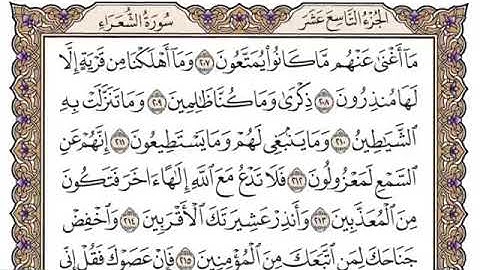 الجزء التاسع عشر سورة الشعراء
مَآ أَغْنَىٰ عَنْهُم مَّا كَانُوا۟ يُمَتَّعُونَ ٢٠٧ وَمَآ أَهْلَكْنَا مِن قَرْيَةٍ إِلَّا
لَهَا مُنذِرُونَ ٢٠٨ ذِكْرَىٰ وَمَا كُنَّا ظَٰلِمِينَ ٢٠٩ وَمَا تَنَزَّلَتْ بِهِ
ٱلشَّيَٰطِينُ ٢١٠ وَمَا يَنۢبَغِى لَهُمْ وَمَا يَسْتَطِيعُونَ ٢١١ إِنَّهُمْ عَنِ
ٱلسَّمْعِ لَمَعْزُولُونَ ٢١٢ فَلَا تَدْعُ مَعَ ٱللَّهِ إِلَٰهًا ءَاخَرَ فَتَكُونَ
مِنَ ٱلْمُعَذَّبِينَ ٢١٣ وَأَنذِرْ عَشِيرَتَكَ ٱلْأَقْرَبِينَ ٢١٤ وَٱخْفِضْ
جَنَاحَكَ لِمَنِ ٱتَّبَعَكَ مِنَ ٱلْمُؤْمِنِينَ ٢١٥ فَإِنْ عَصَوْكَ فَقُلْ إِنِّى